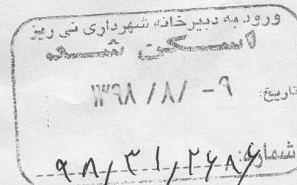 ورود به دبیرخانه شهرداری نی ریز
اسکن شد
تاریخ: ۱۳۹۸ /۸/ -۹
شماره: ۹۸/۳۱/۲۶۸۶